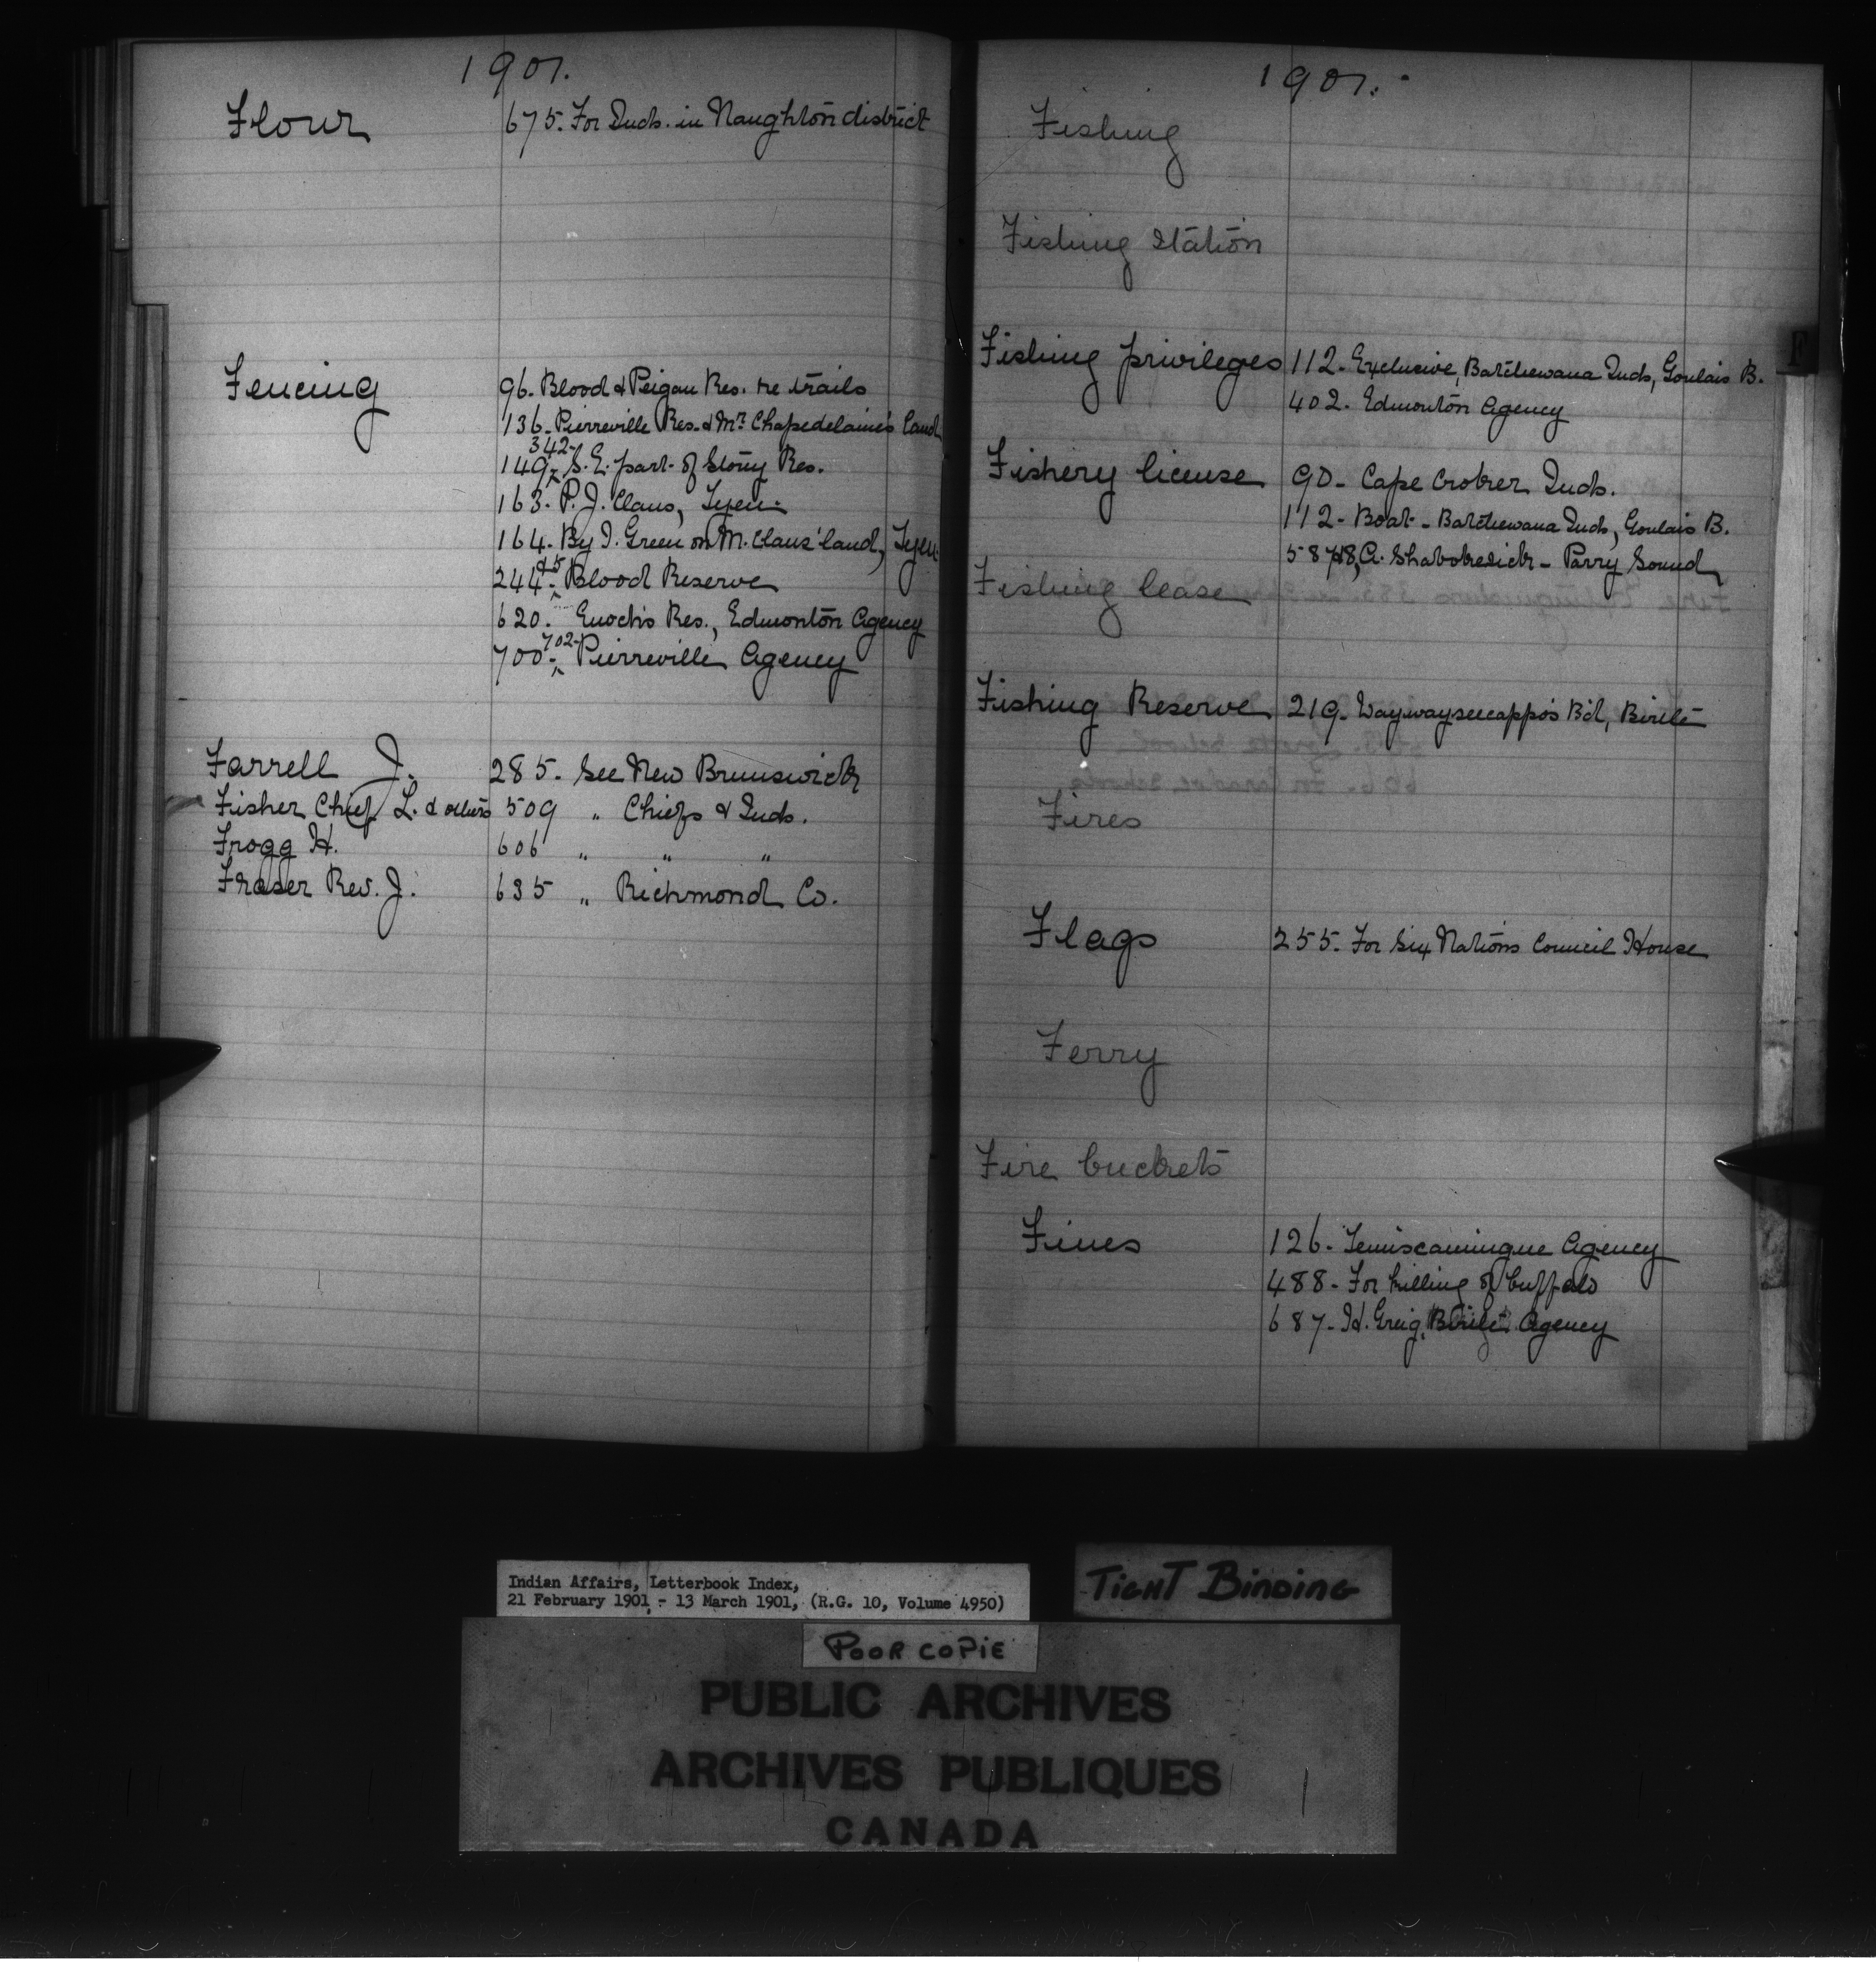 1901.
Flour 675. For Inds. in Naughton district
Fencing 96. Blood & Peigan Res. re trails
136. Pierreville Res. & Mr. Chapedelaine's land
149, 342- S.E. part of Stony Res.
163. P. J. Claus, Tyen.
164. By I. Green on M. Claus' land, Tyen.
244 & 5. Blood Reserve
620. Enoch's Res., Edmonton Agency
700, 702- Pierreville Agency
Farrell J. 285. See New Brunswick
Fisher Chief L. & others 509 " Chiefs & Inds.
Frogg H. 606 " " "
Fraser Rev. J. 635 " Richmond Co.
1901.
Fishing
Fishing Station
Fishing privileges 112. Exclusive, Batchewana Inds, Goulais B.
402. Edmonton Agency
Fishery license 90- Cape Croker Inds.
112- Boat- Batchewana Inds, Goulais B.
587&8, A. Shabokesick- Parry Sound
Fishing lease
Fishing Reserve 219- Waywayseecappo's Bd, Birtle
Fires
Flags 255. For Six Nations Council House
Ferry
Fire buckets
Fines 126- Temiscamingue Agency
488- For killing of buffalo
687- H. Greig, Birtle Agency
F
Indian Affairs, Letterbook Index,
21 February 1901 - 13 March 1901, (R.G. 10, Volume 4950)
TIGHT BINDING
POOR COPIE
PUBLIC ARCHIVES
ARCHIVES PUBLIQUES
CANADA